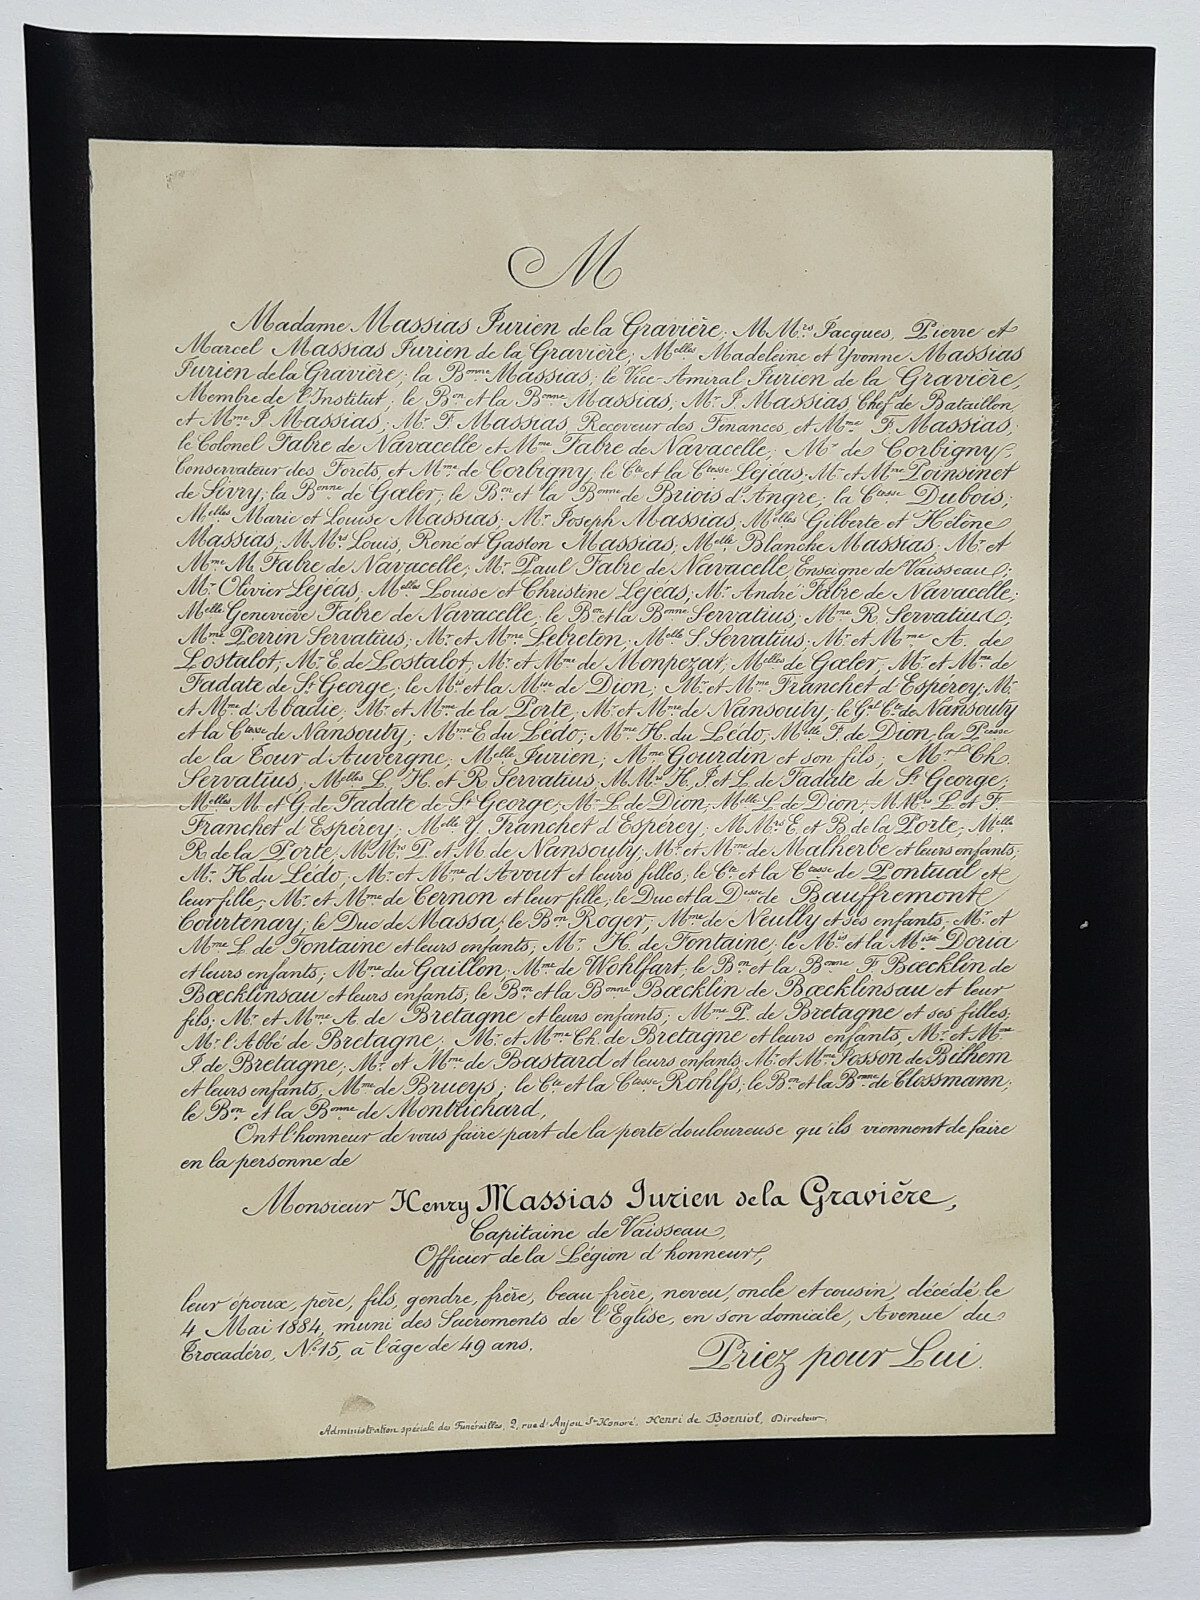 M
Madame Massias Jurien de la Gravière; M.Mrs. Jacques, Pierre et
Marcel Massias Jurien de la Gravière; Melles Madeleine et Yvonne Massias
Jurien de la Gravière; la Bonne Massias; le Vice-Amiral Jurien de la Gravière,
Membre de l'Institut; le Bon et la Bonne Massias, Mr. J. Massias Chef de Bataillon
et Mme J. Massias; Mr. F. Massias, Receveur des Finances, et Mme F. Massias;
le Colonel Fabre de Navacelle et Mme Fabre de Navacelle; Mr de Corbigny,
Conservateur des Forêts, et Mme de Corbigny, le Cte et la Ctesse Lejéas, Mr et Mme Poinsinet
de Sivry; la Bonne de Gœler; le Bon et la Bonne de Briois d'Angre; la Ctesse Dubois;
Melles Marie et Louise Massias; Mr Joseph Massias, Melles Gilberte et Hélène
Massias; M.Mrs Louis, René et Gaston Massias; Melle Blanche Massias; Mr et
Mme M. Fabre de Navacelle; Mr Paul Fabre de Navacelle, Enseigne de Vaisseau;
Mr Olivier Lejéas, Melles Louise et Christine Lejéas; Mr André Fabre de Navacelle;
Melle Geneviève Fabre de Navacelle, le Bon et la Bonne Servatius; Mme R. Servatius;
Mme Perrin Servatius; Mr et Mme Lebreton, Melle S. Servatius; Mr et Mme A. de
Lostalot, Mr E. de Lostalot, Mr et Mme de Monpezat; Melles de Gœler, Mr et Mme de
Fadate de St George; le Mis et la Mise de Dion; Mr et Mme Franchet d'Espérey; Mr
et Mme d'Abadie; Mr et Mme de la Porte, Mr et Mme de Nansouty; le Gal Cte de Nansouty
et la Ctesse de Nansouty; Mme E. du Lédo; Mme H. du Lédo; Melle F. de Dion, la Pcesse
de la Tour d'Auvergne; Melle Jurien; Mme Gourdin et son fils; Mr Ch.
Servatius, Melles L. H. et R. Servatius, M.Mrs H. J. et L. de Fadate de St George;
Melles M. et G. de Fadate de St George; Mr L. de Dion, Melle L. de Dion, M.Mrs L. et F.
Franchet d'Espérey; Melle Y. Franchet d'Espérey; M.Mrs E. et B. de la Porte; Melle
R. de la Porte, M.Mrs P. et M. de Nansouty, Mr et Mme de Malherbe et leurs enfants;
Mr H. du Lédo, Mr et Mme d'Avout et leurs filles; le Cte et la Ctesse de Pontual et
leur fille; Mr et Mme de Cernon et leur fille; le Duc et la Desse de Bauffremont
Courtenay; le Duc de Massa; le Bon Roger; Mme de Neuilly et ses enfants; Mr et
Mme L. de Fontaine et leurs enfants; Mr H. de Fontaine; le Mis et la Mise Doria
et leurs enfants; Mme du Gaillon, Mme de Wohlfart, le Bon et la Bonne F. Bœcklin de
Bœcklinsau et leurs enfants; le Bon et la Bonne Bœcklin de Bœcklinsau et leur
fils; Mr et Mme A. de Bretagne et leurs enfants; Mme P. de Bretagne et ses filles;
Mr l'Abbé de Bretagne; Mr et Mme Ch. de Bretagne et leurs enfants, Mr et Mme
J. de Bretagne; Mr et Mme de Bastard et leurs enfants, Mr et Mme Posson de Bilhem
et leurs enfants, Mme de Brueys; le Cte et la Ctesse Rohlfs; le Bon et la Bonne de Clossmann;
le Bon et la Bonne de Montrichard,
Ont l'honneur de vous faire part de la perte douloureuse qu'ils viennent de faire
en la personne de
Monsieur Henry Massias Jurien de la Gravière,
Capitaine de Vaisseau,
Officier de la Légion d'honneur,
leur époux, père, fils, gendre, frère, beau frère, neveu, oncle et cousin, décédé le
4 Mai 1884, muni des Sacrements de l'Eglise, en son domicile, Avenue du
Trocadéro, No 15, à l'âge de 49 ans.
Priez pour Lui.
Administration spéciale des Funérailles, 2, rue d'Anjou St-Honoré. Henri de Borniol, Directeur.